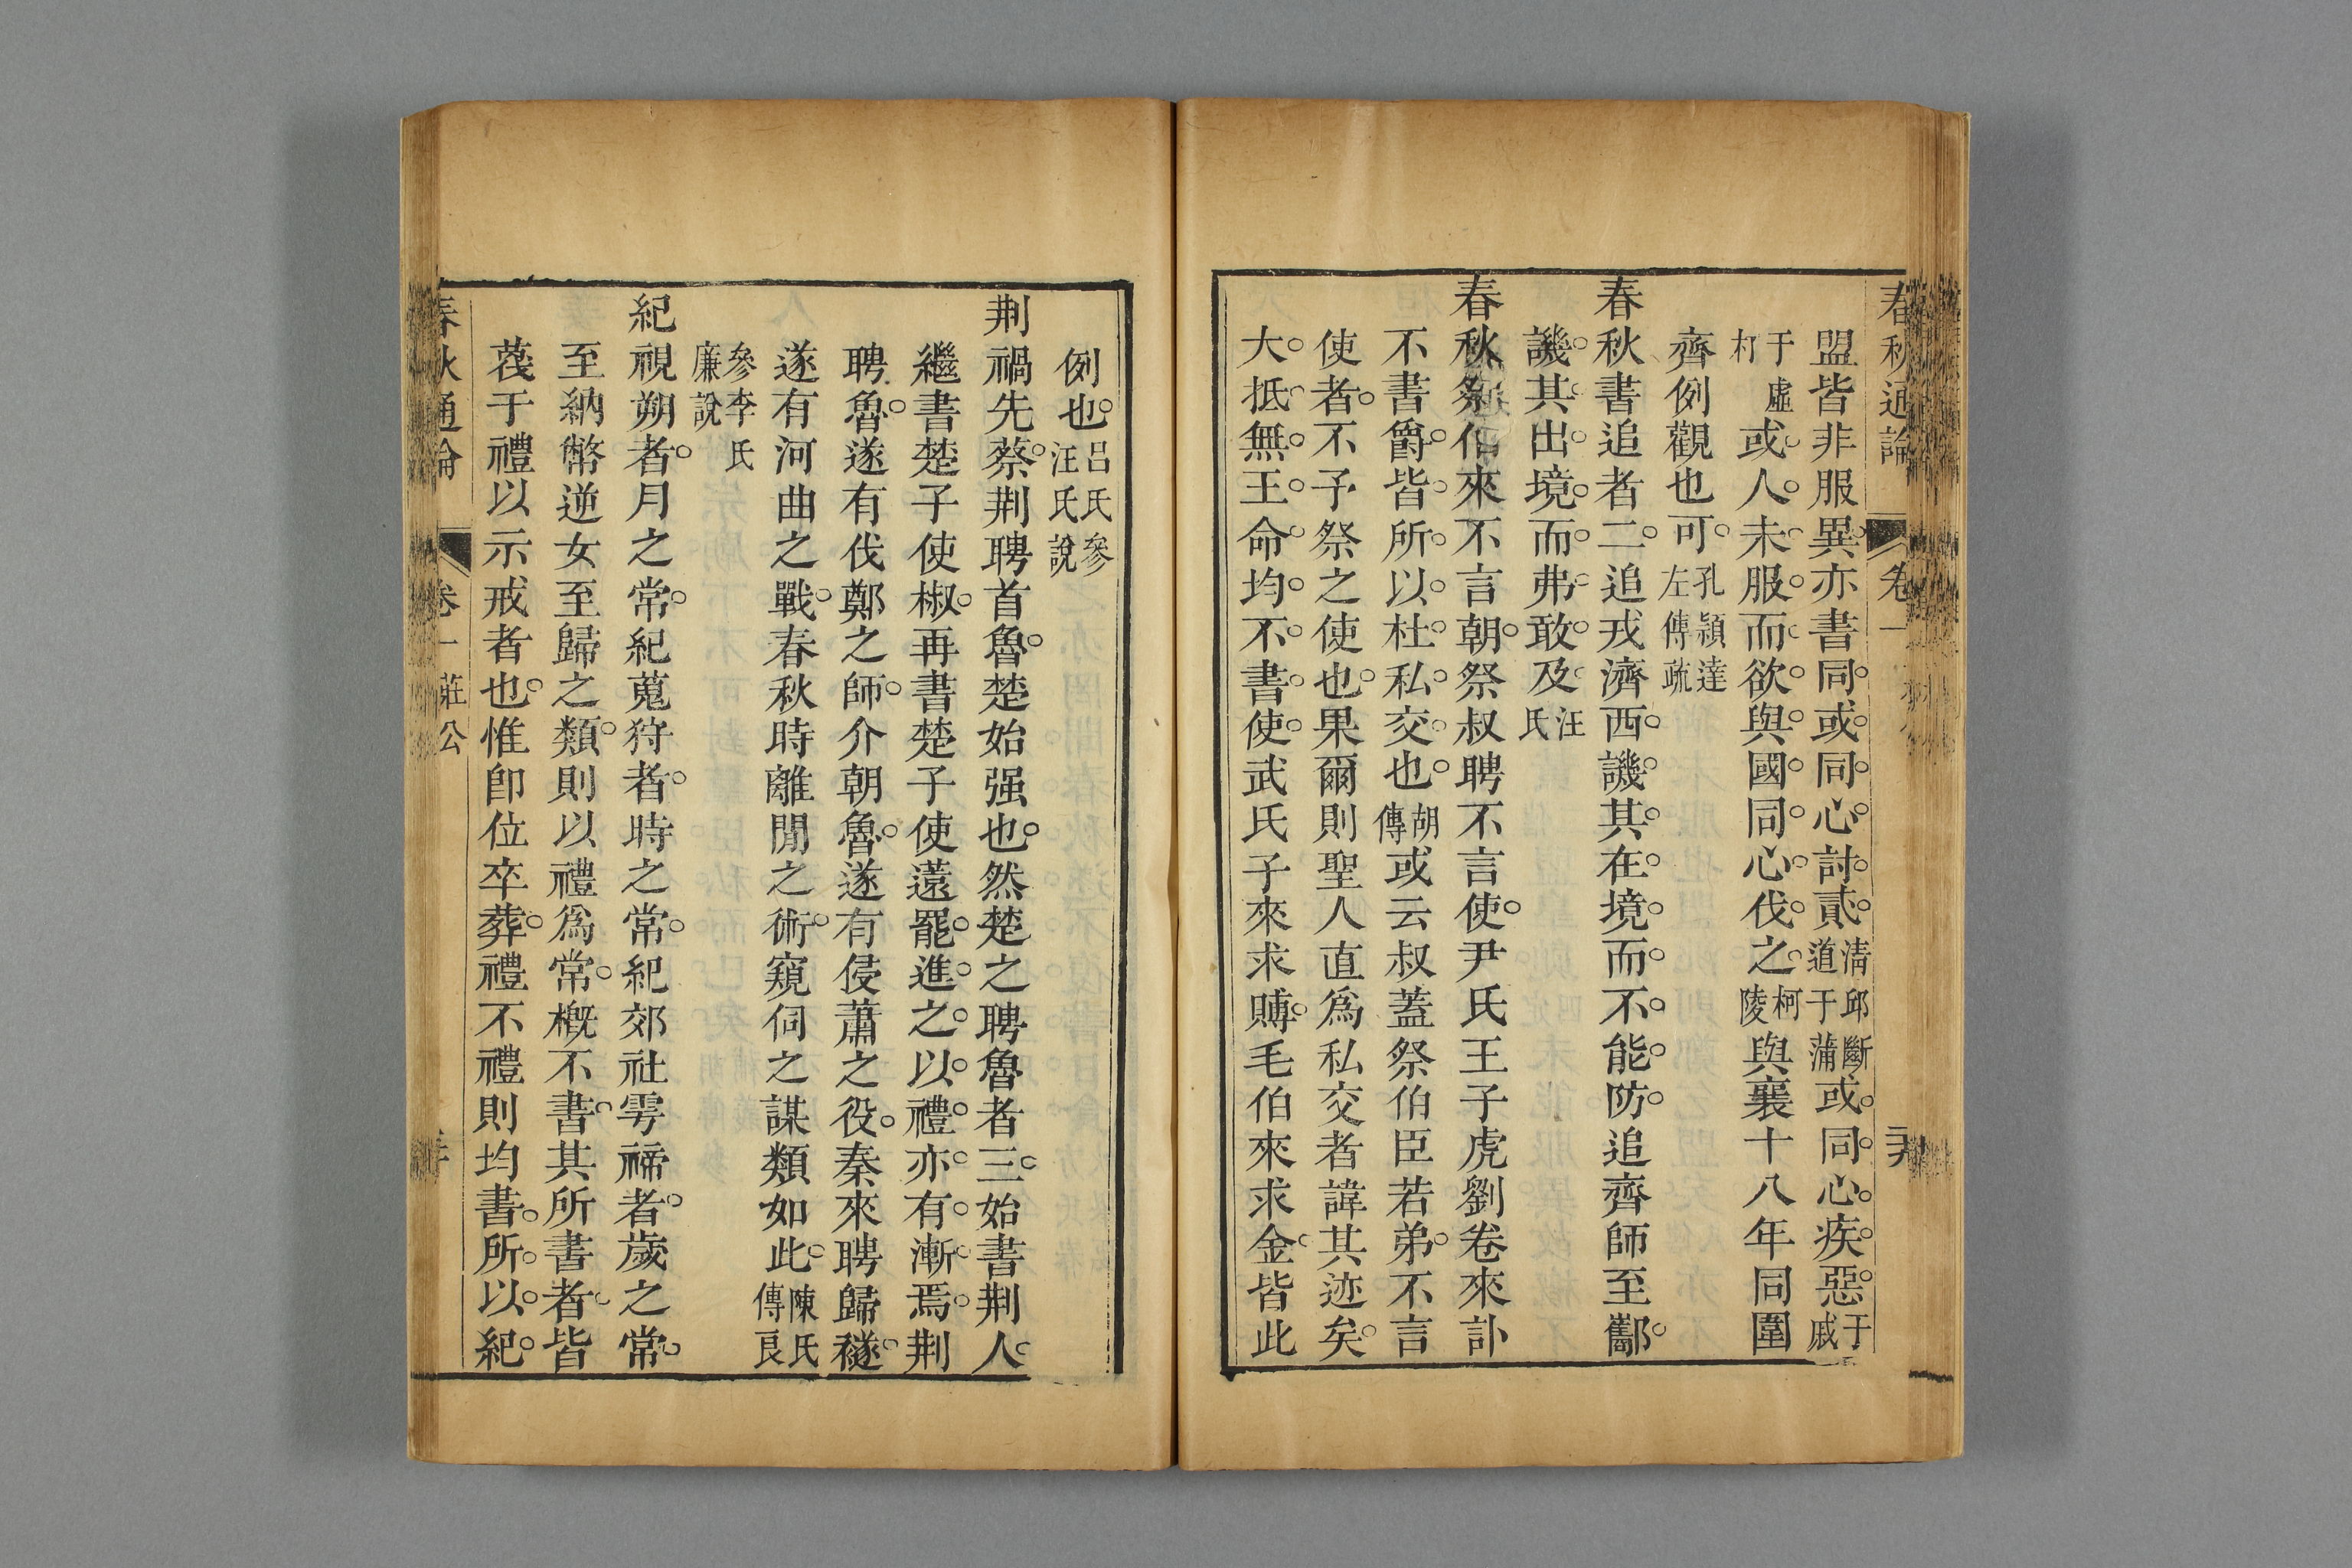 春秋通論 卷一 二十九
盟皆非服異亦書同或同心討貳清邱斷道于蒲或同心疾惡于戚
于虛朾或人未服而欲與國同心伐之柯陵與襄十八年同圍
齊例觀也可孔穎達左傳疏
春秋書追者二追戎濟西譏其在境而不能防追齊師至酅
譏其出境而弗敢及汪氏
春秋祭伯來不言朝祭叔聘不言使尹氏王子虎劉卷來訃
不書爵皆所以杜私交也胡傳或云叔蓋祭伯臣若弟不言
使者不予祭之使也果爾則聖人直為私交者諱其迹矣
大抵無王命均不書使武氏子來求賻毛伯來求金皆此
例也呂氏參汪氏說
荆禍先蔡荆聘首魯楚始强也然楚之聘魯者三始書荆人
繼書楚子使椒再書楚子使薳罷進之以禮亦有漸焉荆
聘魯遂有伐鄭之師介朝魯遂有侵蕭之役秦來聘歸襚
遂有河曲之戰春秋時離間之術窺伺之謀類如此陳氏傳良
參李氏廉說
紀視朔者月之常紀蒐狩者時之常紀郊社雩禘者歲之常
至納幣逆女至歸之類則以禮為常概不書其所書者皆
蔑于禮以示戒者也惟卽位卒葬禮不禮則均書所以紀
春秋通論 卷一 莊公